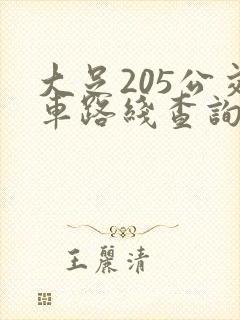 大足205公交
車路綫查詢
王麗清